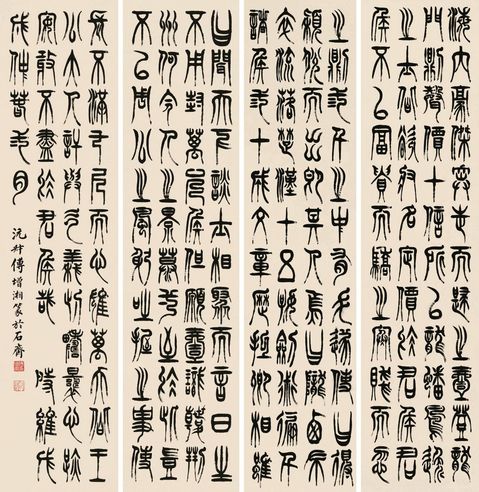 海內豪傑奔走而歸之壹登龍
門則聲價十倍所以龍蟠鳳逸
之士皆欲收名定價於君侯君
侯不以富貴而驕之寒賤而忽
之則三千之中有毛遂使白得
穎脫而出即其人焉白隴西布
衣流落楚漢十五好劍術徧干
諸侯三十成文章歷抵卿相雖
白聞天下談士相聚而言曰生
不用封萬戶侯但願壹識韓荊
州何令人之景慕一至於此豈
不以周公之風躬吐握之事使
長不滿七尺而心雄萬夫皆王
公大人許與氣義此疇曩心跡
安敢不盡於君侯哉 時維戊
戌仲春之月
沅叔傅增湘篆於石齋